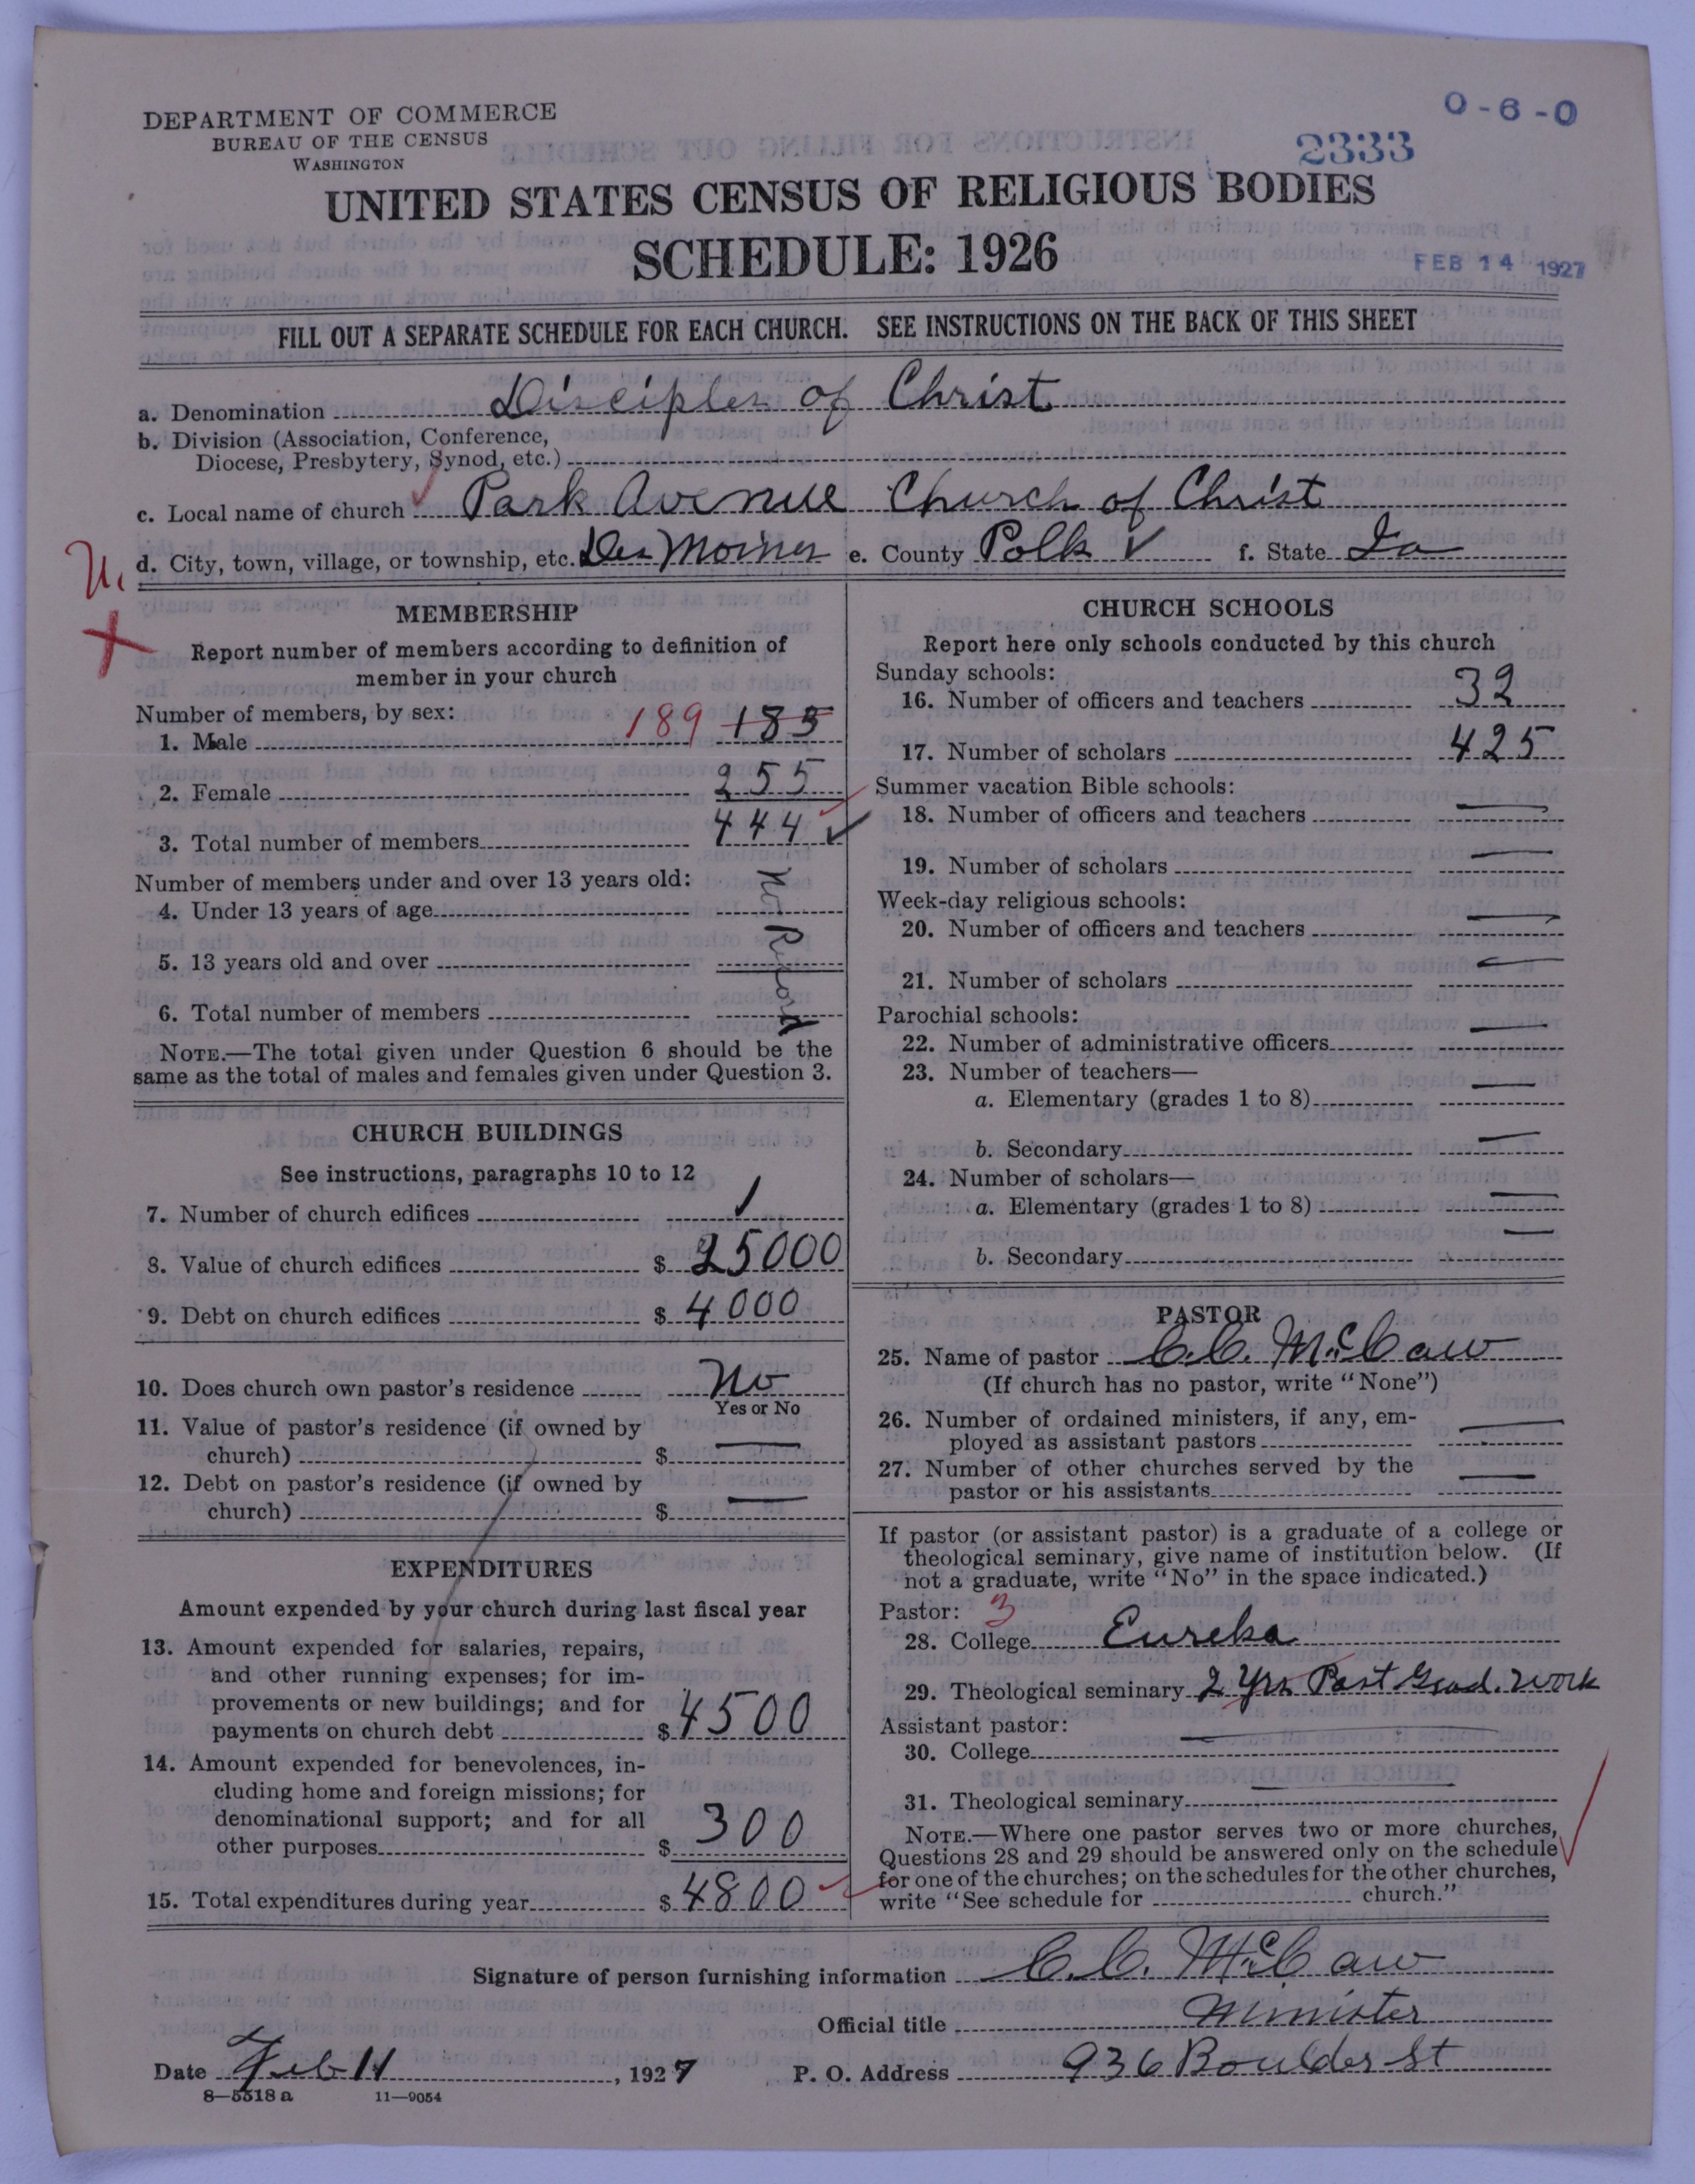 DEPARTMENT OF COMMERCE
BUREAU OF THE CENSUS
WASHINGTON
0-6-0
2333
UNITED STATES CENSUS OF RELIGIOUS BODIES
SCHEDULE: 1926
FEB 14 1927
FILL OUT A SEPARATE SCHEDULE FOR EACH CHURCH. SEE INSTRUCTIONS ON THE BACK OF THIS SHEET
a. Denomination Disciples of Christ
b. Division (Association, Conference,
Diocese, Presbytery, Synod, etc.)
c. Local name of church Park Avenue Church of Christ
d. City, town, village, or township, etc. Des Moines e. County Polk ✓ f. State Ia
MEMBERSHIP
Report number of members according to definition of
member in your church
Number of members, by sex:
1. Male 189 185
2. Female 255
3. Total number of members 444 ✓
Number of members under and over 13 years old:
4. Under 13 years of age
No Record
5. 13 years old and over
6. Total number of members
NOTE.—The total given under Question 6 should be the
same as the total of males and females given under Question 3.
CHURCH BUILDINGS
See instructions, paragraphs 10 to 12
7. Number of church edifices 1
8. Value of church edifices $ 25000
9. Debt on church edifices $ 4000
10. Does church own pastor's residence No
Yes or No
11. Value of pastor's residence (if owned by
church) $ —
12. Debt on pastor's residence (if owned by
church) $ —
EXPENDITURES
Amount expended by your church during last fiscal year
13. Amount expended for salaries, repairs,
and other running expenses; for im-
provements or new buildings; and for
payments on church debt $ 4500
14. Amount expended for benevolences, in-
cluding home and foreign missions; for
denominational support; and for all
other purposes $ 300
15. Total expenditures during year $ 4800
CHURCH SCHOOLS
Report here only schools conducted by this church
Sunday schools:
16. Number of officers and teachers 32
17. Number of scholars 425
Summer vacation Bible schools:
18. Number of officers and teachers —
19. Number of scholars —
Week-day religious schools:
20. Number of officers and teachers —
21. Number of scholars —
Parochial schools:
22. Number of administrative officers —
23. Number of teachers—
a. Elementary (grades 1 to 8) —
b. Secondary —
24. Number of scholars—
a. Elementary (grades 1 to 8) —
b. Secondary —
PASTOR
25. Name of pastor C.C. McCaw
(If church has no pastor, write "None")
26. Number of ordained ministers, if any, em-
ployed as assistant pastors —
27. Number of other churches served by the
pastor or his assistants —
If pastor (or assistant pastor) is a graduate of a college or
theological seminary, give name of institution below. (If
not a graduate, write "No" in the space indicated.)
Pastor: 3
28. College Eureka
29. Theological seminary 2 Yrs Post Grad. Work
Assistant pastor:
30. College —
31. Theological seminary —
NOTE.—Where one pastor serves two or more churches,
Questions 28 and 29 should be answered only on the schedule
for one of the churches; on the schedules for the other churches,
write "See schedule for church."
Signature of person furnishing information C.C. McCaw
Official title Minister
Date Feb 11, 1927 P. O. Address 936 Boulder St
8—5518 a 11—9054